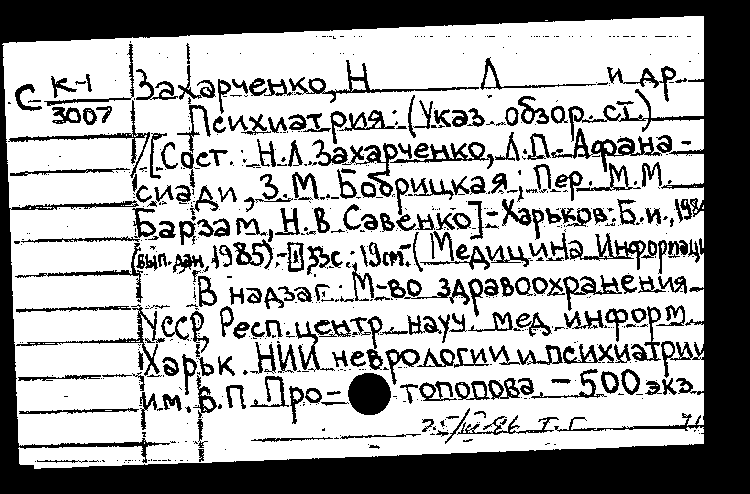 С К-1 Захарченко, Н Л и др
3007
Психиатрия: (Указ. обзор. ст.)
/[Сост.: Н.Л. Захарченко, Л.П. Афана-
сиади, З.М. Бобрицкая; Пер. М.М.
Барзам, Н.В Савенко].- Харьков: Б.и., 1984
(вып. дан. 1985).- 33с.; 19см.- (Медицина Информаци
В надзаг.: М-во здравоохранения
УССР, Респ. центр. науч. мед. информ.
Харьк. НИИ неврологии и психиатрии
им. В.П. Про- топопова. - 500 экз
Т. Г